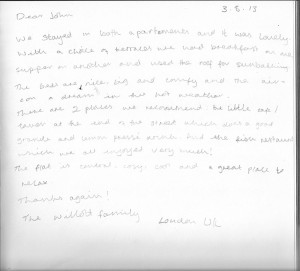 Dear John 3.8.13
We stayed in both apartments and it was lovely
With a choice of terraces we had breakfast on one
supper on another and used the roof for sunbathing
The beds are nice big and comfy and the air
con a dream in the hot weather.
There are 2 places we recommend the little cafe/
at the end of the street which does a great
and lemon drink and the fish restaurant
which we all enjoyed very much!
The flat is central, cosy, cool and a great place to
relax
Thanks again!
The Willott family London UK